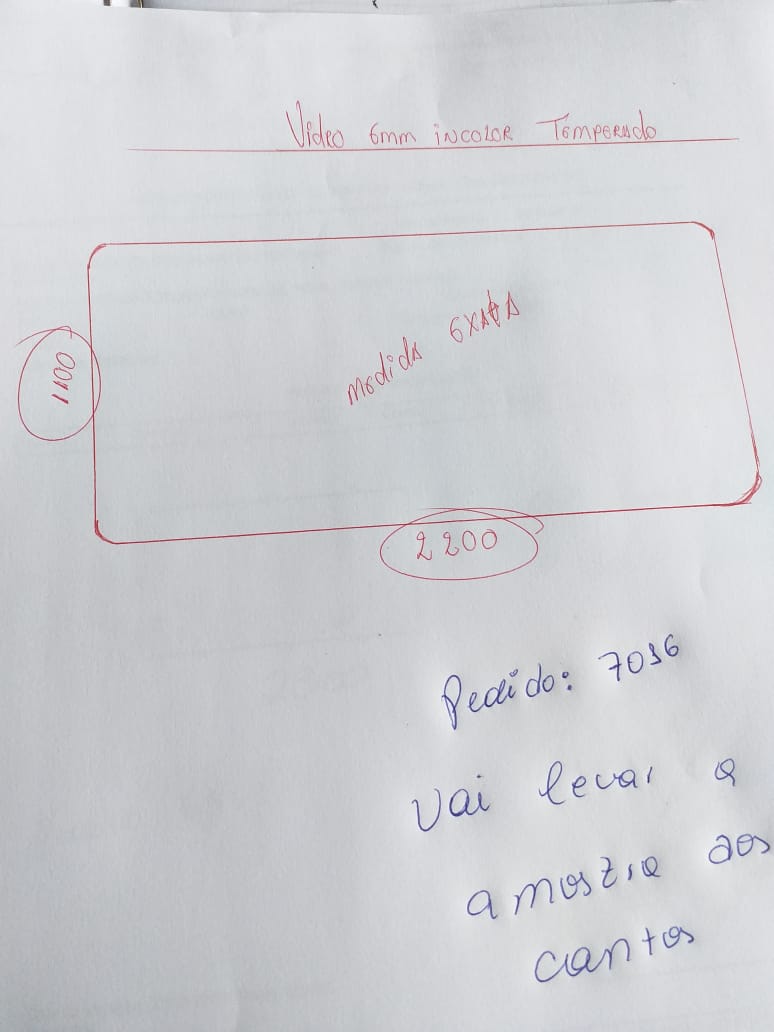 Video 6mm iNCOLOR TEMPERAdo
medidA EXAtA
1100
2200
Pedido: 7036
Vai levar a
amostra dos
cantos